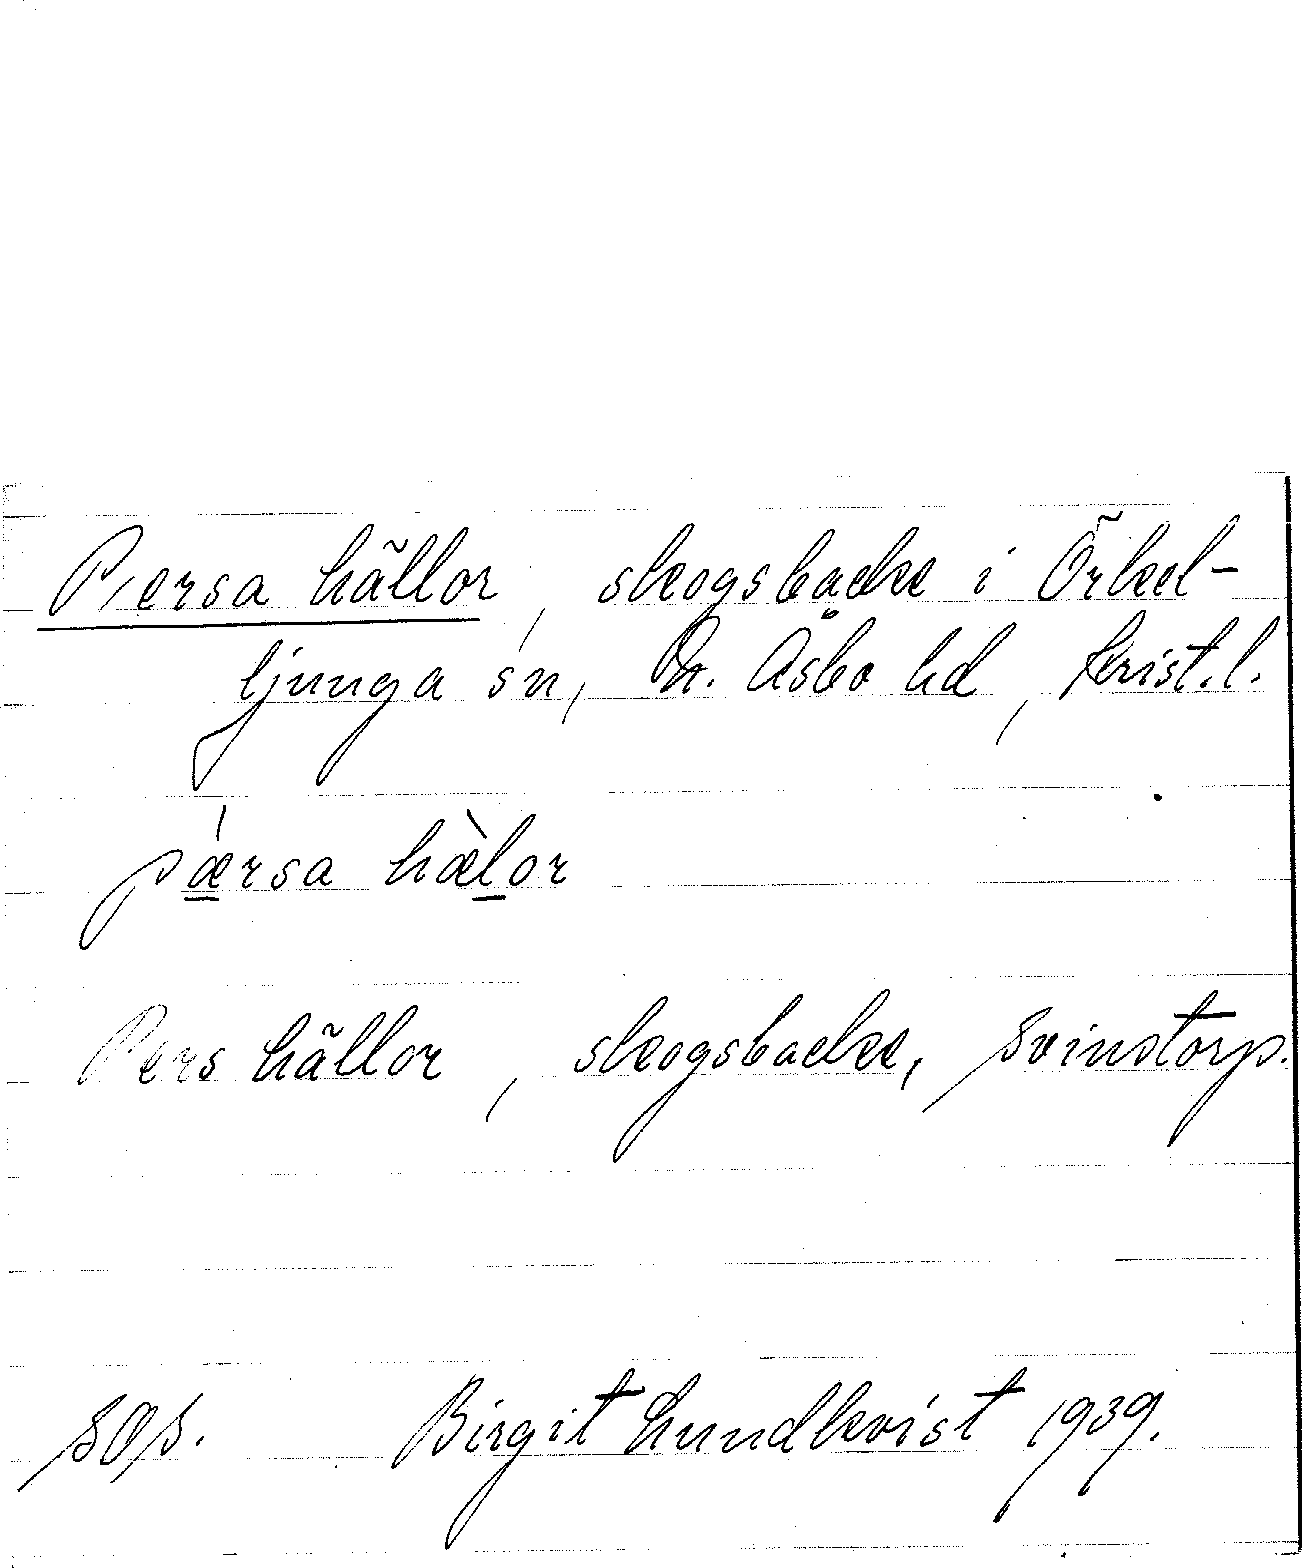 Persa hällor, skogsbacke i Örkel-
ljunga sn, N. Åsbo hd, Krist. l.
pǽrsa hæ̀lor
Pers hällor, skogsbacke, Svinstorp.
SOS. Birgit Lundkvist 1939.